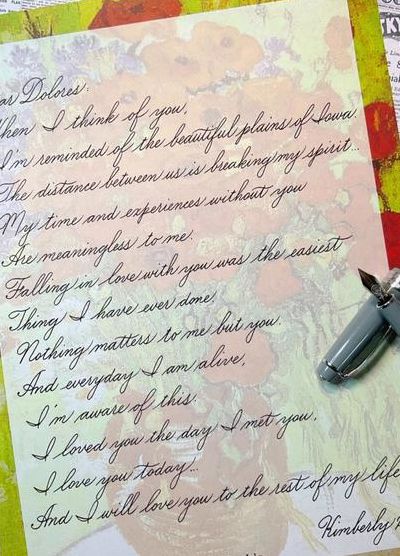 Dear Dolores:
When I think of you,
I'm reminded of the beautiful plains of Iowa.
The distance between us is breaking my spirit...
My time and experiences without you
Are meaningless to me.
Falling in love with you was the easiest
Thing I have ever done.
Nothing matters to me but you.
And everyday I am alive,
I'm aware of this.
I loved you the day I met you,
I love you today...
And I will love you to the rest of my life
Kimberly